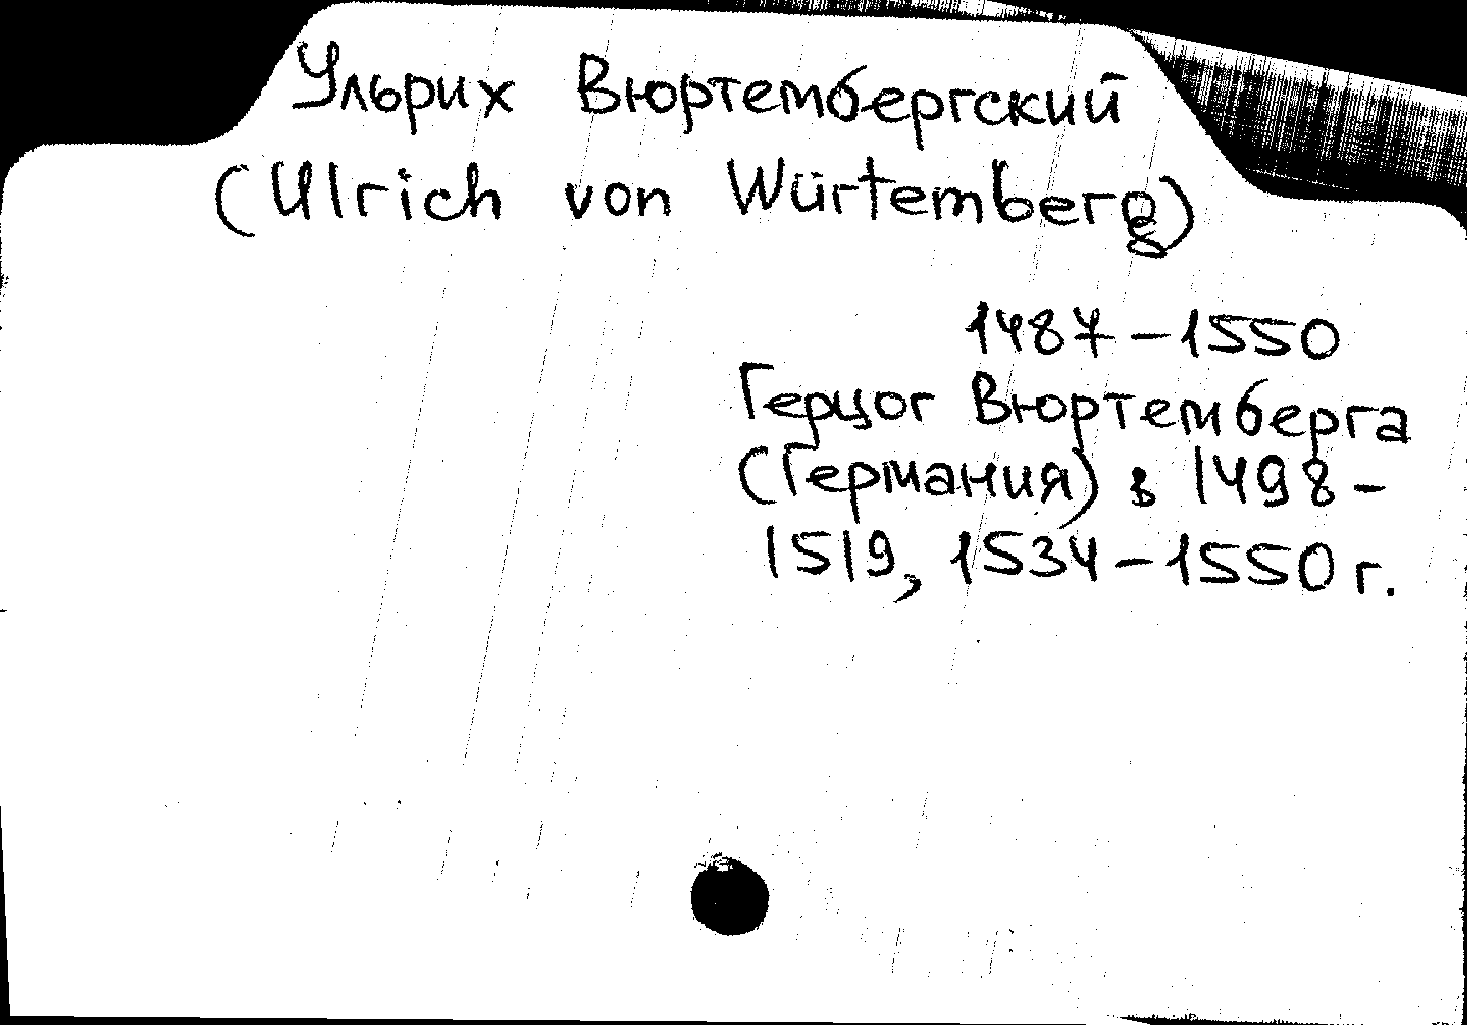 Ульрих Вюртембергский
(Ulrich von Würtemberg)
1487-1550
Герцог Вюртемберга
(Германия) в 1498-
1519, 1534-1550 г.